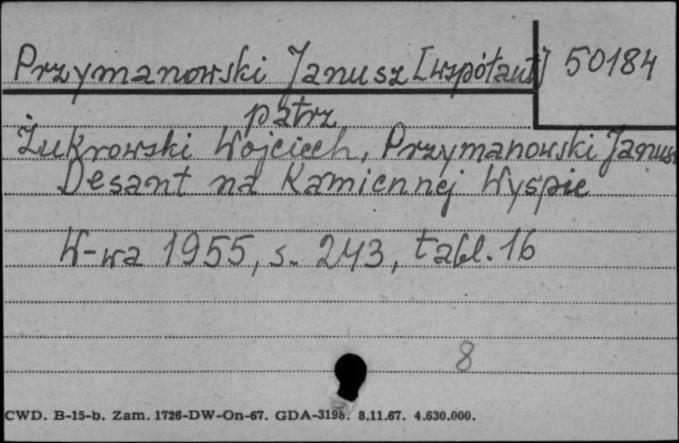 Przymanowski Janusz [współaut] 50184
patrz
Żukrowski Wojciech, Przymanowski Janusz
Desant na Kamiennej Wyspie
W-wa 1955, s. 243, tabl. 16
8
CWD. B-15-b. Zam. 1726-DW-On-67. GDA-3198. 8.11.67. 4.630.000.